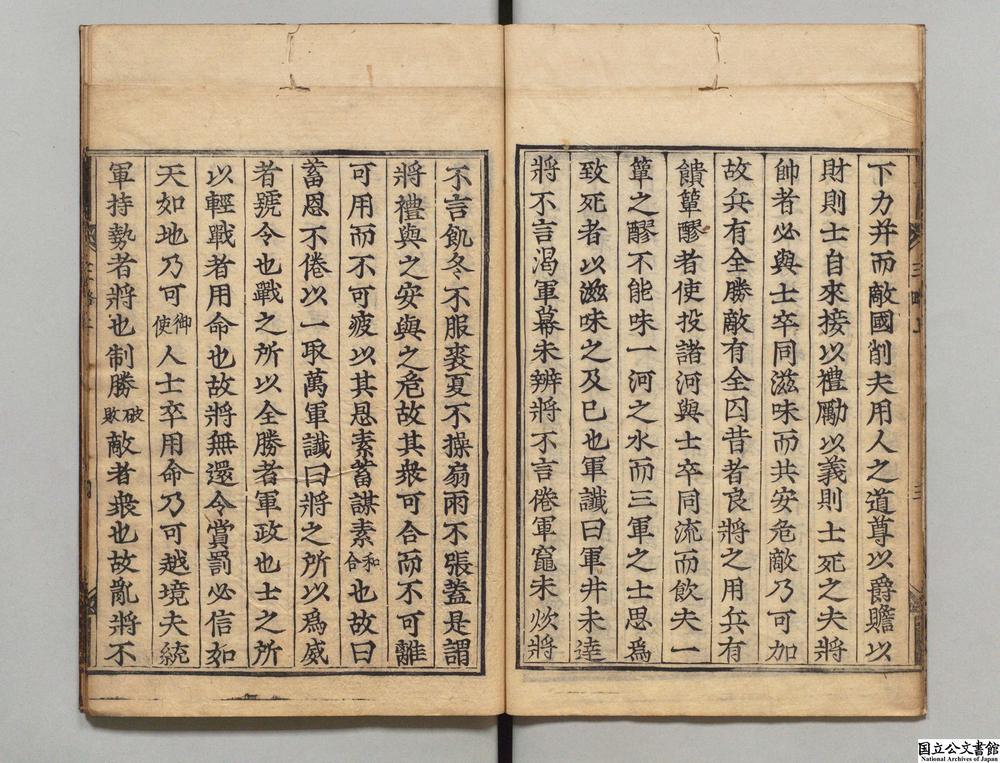 下力并而敵國削夫用人之道尊以爵贍以
財則士自來接以禮勵以義則士死之夫將
帥者必與士卒同滋味而共安危敵乃可加
故兵有全勝敵有全囚昔者良將之用兵有
饋簞醪者使投諸河與士卒同流而飲夫一
簞之醪不能味一河之水而三軍之士思爲
致死者以滋味之及已也軍讖曰軍井未達
將不言渴軍幕未辨將不言倦軍竈未炊將
不言飢冬不服裘夏不操扇雨不張蓋是謂
將禮與之安與之危故其衆可合而不可離
可用而不可疲以其恩素蓄謀素和合也故曰
蓄恩不倦以一取萬軍讖曰將之所以爲威
者號令也戰之所以全勝者軍政也士之所
以輕戰者用命也故將無還令賞罰必信如
天如地乃可御使人士卒用命乃可越境夫統
軍持勢者將也制勝破敗敵者衆也故亂將不
三略上
三
国立公文書館
National Archives of Japan